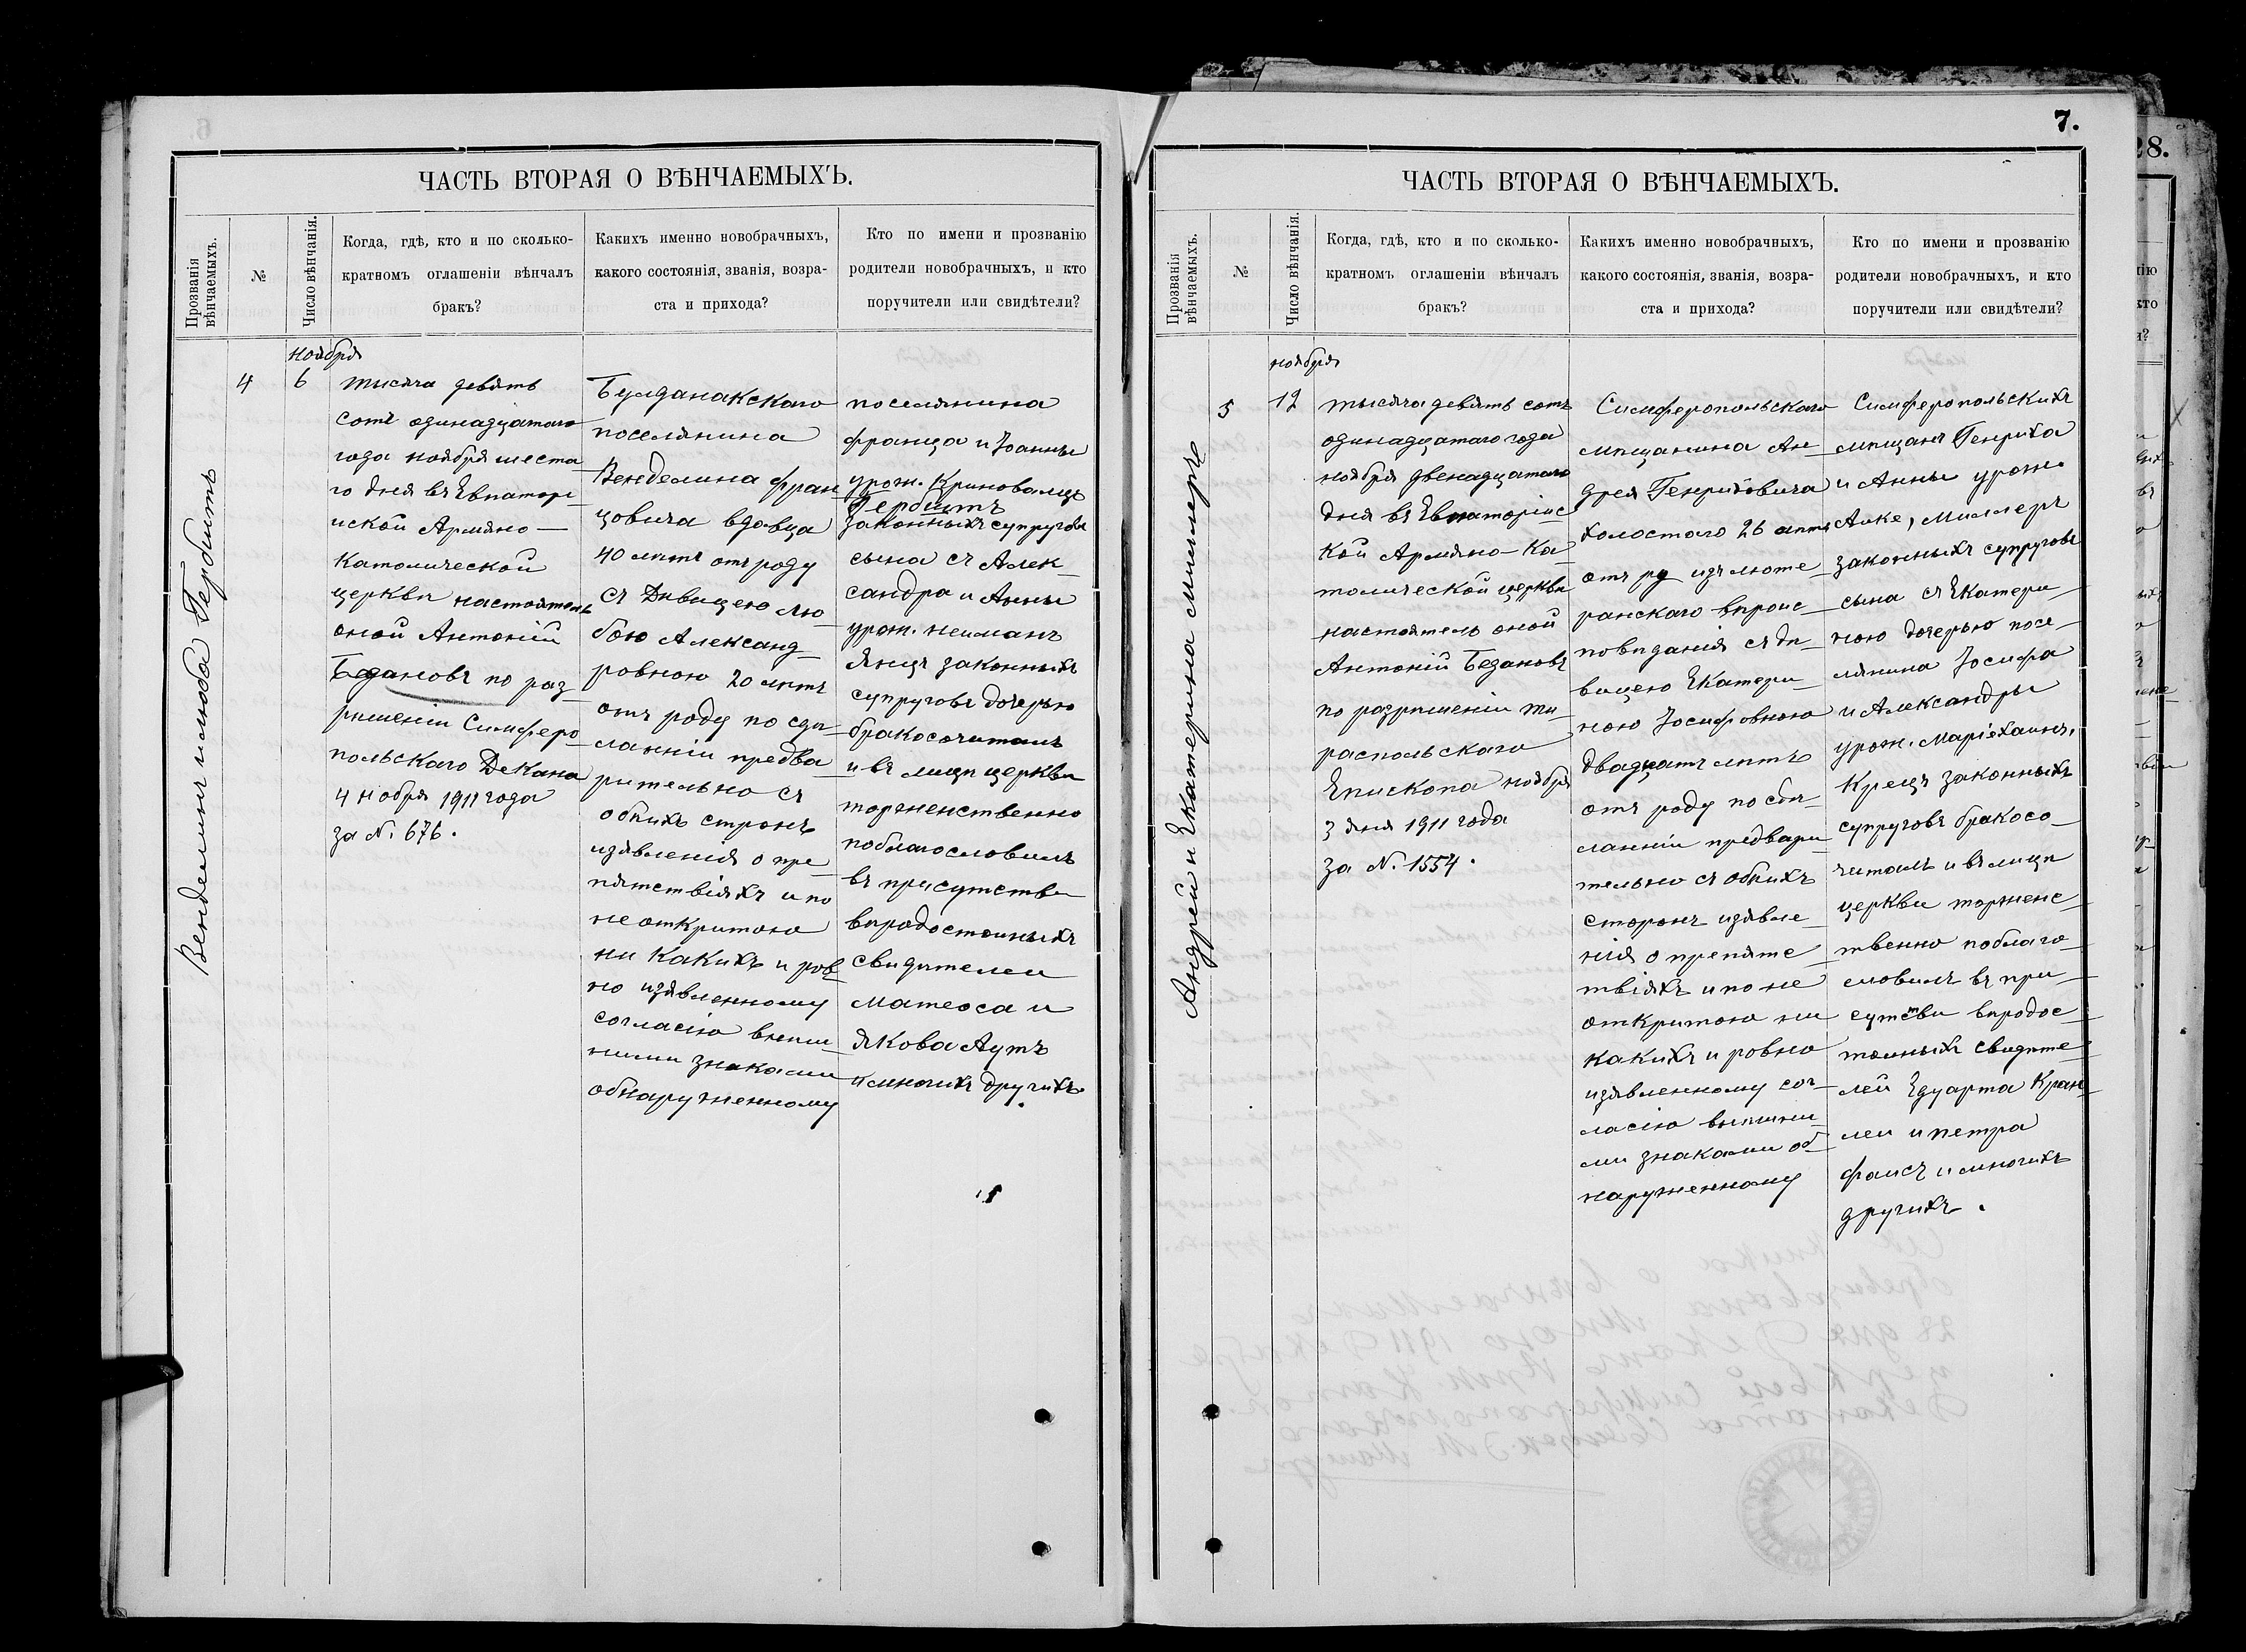 ЧАСТЬ ВТОРАЯ О ВѢНЧАЕМЫХЪ.
Прозванія вѣнчаемыхъ.
№
Число вѣнчанія.
Когда, гдѣ, кто и по сколько-
кратномъ оглашеніи вѣнчалъ
бракъ?
Какихъ именно новобрачныхъ,
какого состоянія, званія, возра-
ста и прихода?
Кто по имени и прозванію
родители новобрачныхъ, и кто
поручители или свидѣтели?
Венделинъ и люба Гербитъ
4
ноября
6
тисяча девять
сотъ одинадцатаго
года ноября шеста
го дня въ Евпатор
иской Армяно-
Католической
церкви настоятель
оной Антоній
Безановъ по раз
рѣшеніи Симферо-
польскаго Декана
4 нобря 1911 года
за №. 676.
Булганакскаго
поселянина
Венделина Фран
цовича вдовца
40 лѣтъ отъ роду
съ Дѣвицею лю-
бою Александ-
ровною 20 лѣтъ
отъ роду по сдѣ-
ланніи предва
рительно съ
обѣихъ стронъ
изявленія о пре-
пятствіяхъ и по
не откритою
ни какихъ и ров
но изявленному
согласію внѣш-
ними знаками
обнаруженному
поселянина
франца и Іоанны
урож. Криновалць
Гербитъ
законныхъ супруговъ
сына съ Алек-
сандра и Анны
урож. нейманъ
Янцъ законныхъ
супруговъ дочерью
бракосочиталъ
и въ лицѣ церкви
торженственно
поблагословилъ
въ присутстви
вѣродостоиныхъ
свидѣтелеи
матеоса и
якова Аутъ
и многихъ другихъ.
7.
ЧАСТЬ ВТОРАЯ О ВѢНЧАЕМЫХЪ.
Прозванія вѣнчаемыхъ.
№
Число вѣнчанія.
Когда, гдѣ, кто и по сколько-
кратномъ оглашеніи вѣнчалъ
бракъ?
Какихъ именно новобрачныхъ,
какого состоянія, званія, возра-
ста и прихода?
Кто по имени и прозванію
родители новобрачныхъ, и кто
поручители или свидѣтели?
Андрей и Екатерина миллеръ
5
ноября
12
тысяча девять сотъ
одинадцатаго года
ноября двенадцатаго
дня въ Евпаторійс
кой Армяно-Ка
толической церкви
настоятель оной
Антоній Безановъ
по разрѣшеніи ти-
распольскаго
Епископа ноября
3 дня 1911 года
за №. 1554.
Симферопольскаго
мѣщанина Ан-
дрея Генриховича
холостаго 26 лѣтъ
отъ рд изъ люте-
ранскаго вѣроис-
повѣданія съ дѣ-
вицею Екатери-
ною Іосифовною
двадцатъ лѣтъ
отъ роду по сдѣ-
ланніи предвари
тельно съ обѣихъ
сторонъ изявле-
нія о препятс-
твіяхъ и по не
откритою ни
какихъ и ровно
изявленному сог-
ласію внѣшни-
ми знаками об-
наруженному
Симферопольскихъ
мѣщанъ Генриха
и Анны урож.
Анке, Миллеръ
законныхъ супруговъ
сына съ Екатери-
ною дочерью посе-
лянина Іосифа
и Александры
урож. Маріехаинъ,
Крецъ законныхъ
супруговъ бракосо-
читалъ и въ лицѣ
церкви торженс-
твенно поблаго-
словилъ въ при-
сутстви вѣродос-
тоиныхъ свидѣте
леи Едуарта Кран-
леи и петра
фаисъ и многихъ
другихъ.
28.